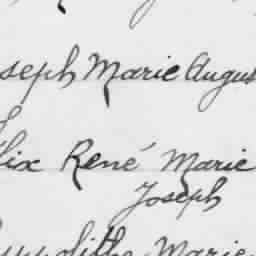 seph Marie Augus
lix René Marie
Joseph
ppolithe Marie